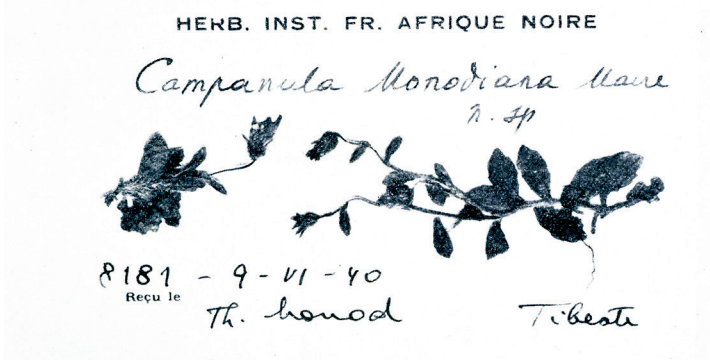 HERB. INST. FR. AFRIQUE NOIRE
Campanula Monodiana Maire
n. sp
8181 - 9 - VI - 40
Reçu le
Th. Monod
Tibesti